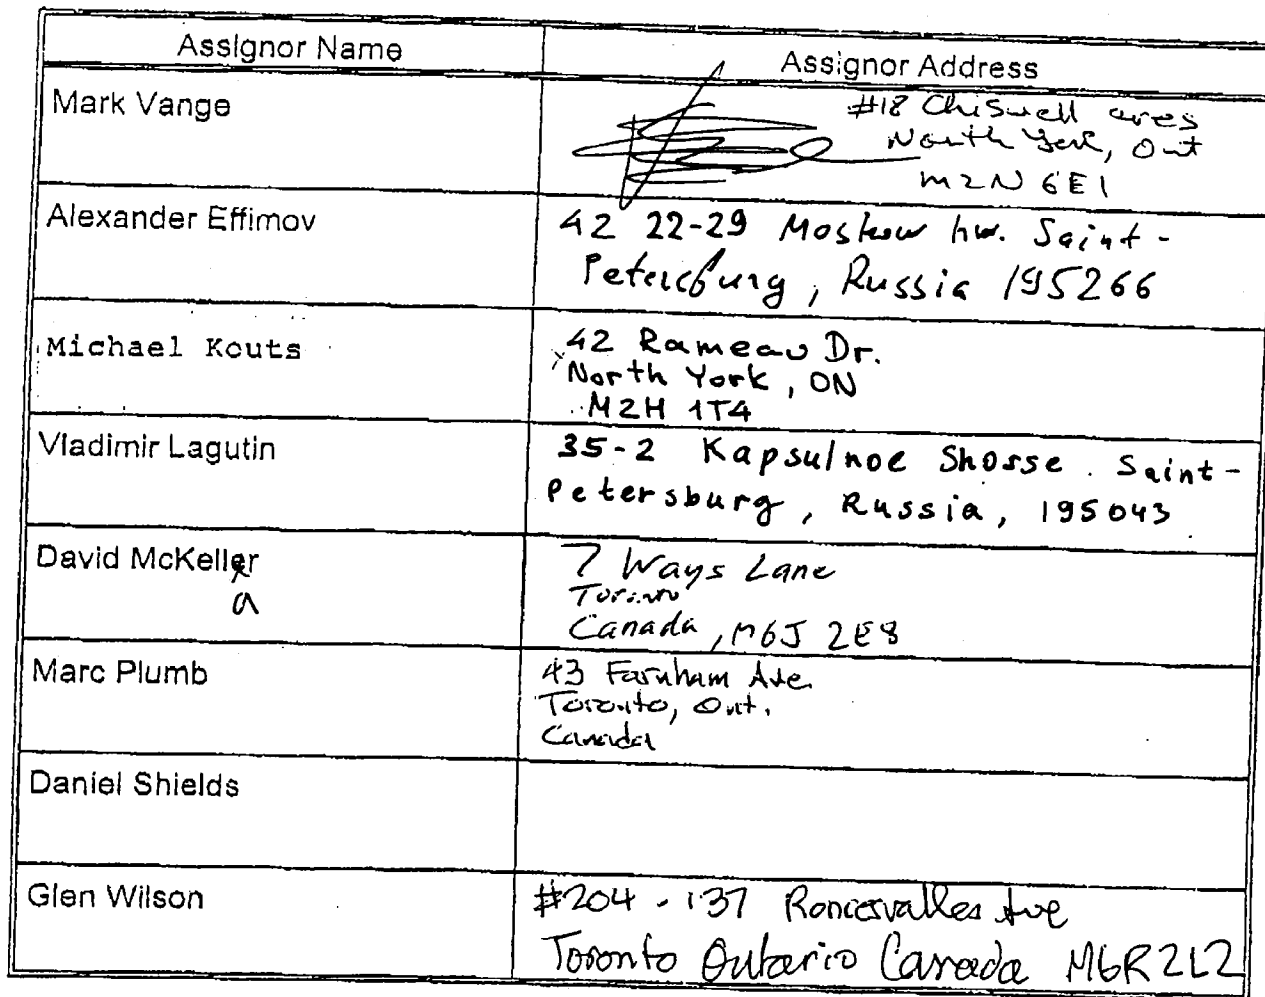 Assignor Name
Assignor Address
Mark Vange
#18 Chiswell cres
North York, Ont
M2N 6E1
Alexander Effimov
42 22-29 Moskow hw. Saint-
Petersburg, Russia 195266
Michael Kouts
42 Rameau Dr.
North York, ON
M2H 1T4
Vladimir Lagutin
35-2 Kapsulnoe Shosse. Saint-
Petersburg, Russia, 195043
David McKeller
a
7 Ways Lane
Toronto
Canada, M6J 2E8
Marc Plumb
43 Farnham Ave.
Toronto, Ont.
Canada
Daniel Shields
Glen Wilson
#204 - 137 Roncesvalles Ave
Toronto Ontario Canada M6R2L2